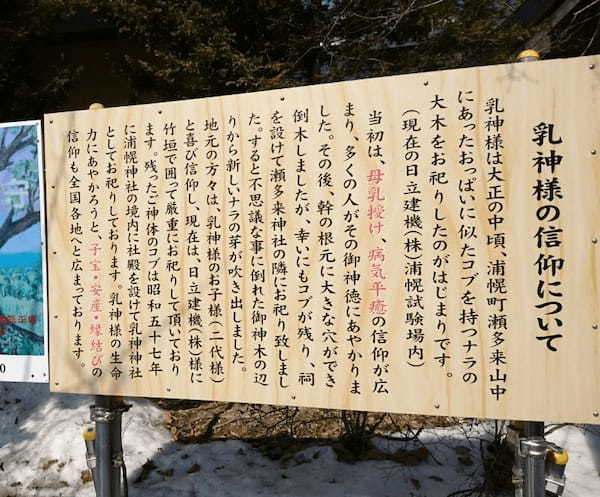 乳神様の信仰について
乳神様は大正の中頃、浦幌町瀬多来山中
にあったおっぱいに似たコブを持つナラの
大木をお祀りしたのがはじまりです。
(現在の日立建機(株)浦幌試験場内)
当初は、母乳授け、病気平癒の信仰が広
まり、多くの人がその御神徳にあやかりま
した。その後、幹の根元に大きな穴ができ
倒木しましたが、幸いにもコブが残り、祠
を設けて瀬多来神社の隣にお祀り致しまし
た。すると不思議な事に倒れた御神木の辺
りから新しいナラの芽が吹き出しました。
地元の方々は、乳神様のお子様(二代様)
と喜び信仰し、現在は、日立建機(株)様に
竹垣で囲って厳重にお祀りして頂いており
ます。残ったご神体のコブは昭和五十七年
に浦幌神社の境内に社殿を設けて乳神神社
としてお祀りしております。乳神様の生命
力にあやかろうと、子宝・安産・縁結びの
信仰も全国各地へと広まっております。